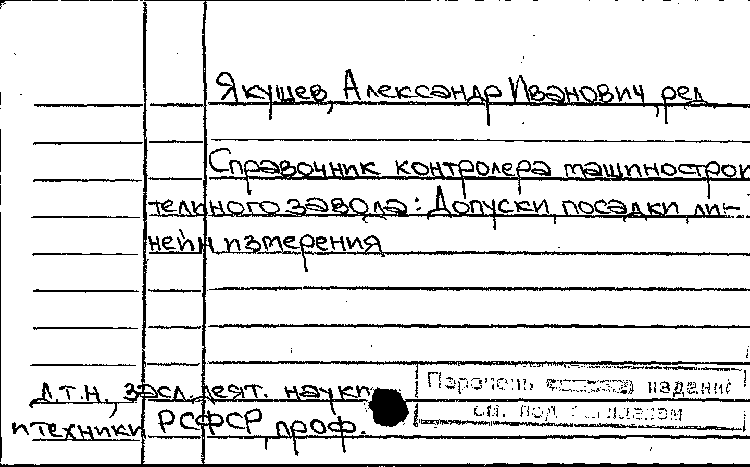 Якушев, Александр Иванович, ред.
Справочник контролера машинострои
тельного завода: Допуски, посадки, ли-
нейн измерения
Д.т.н., засл. деят. науки
и техники РСФСР, проф.
Перечень изданий
см. под